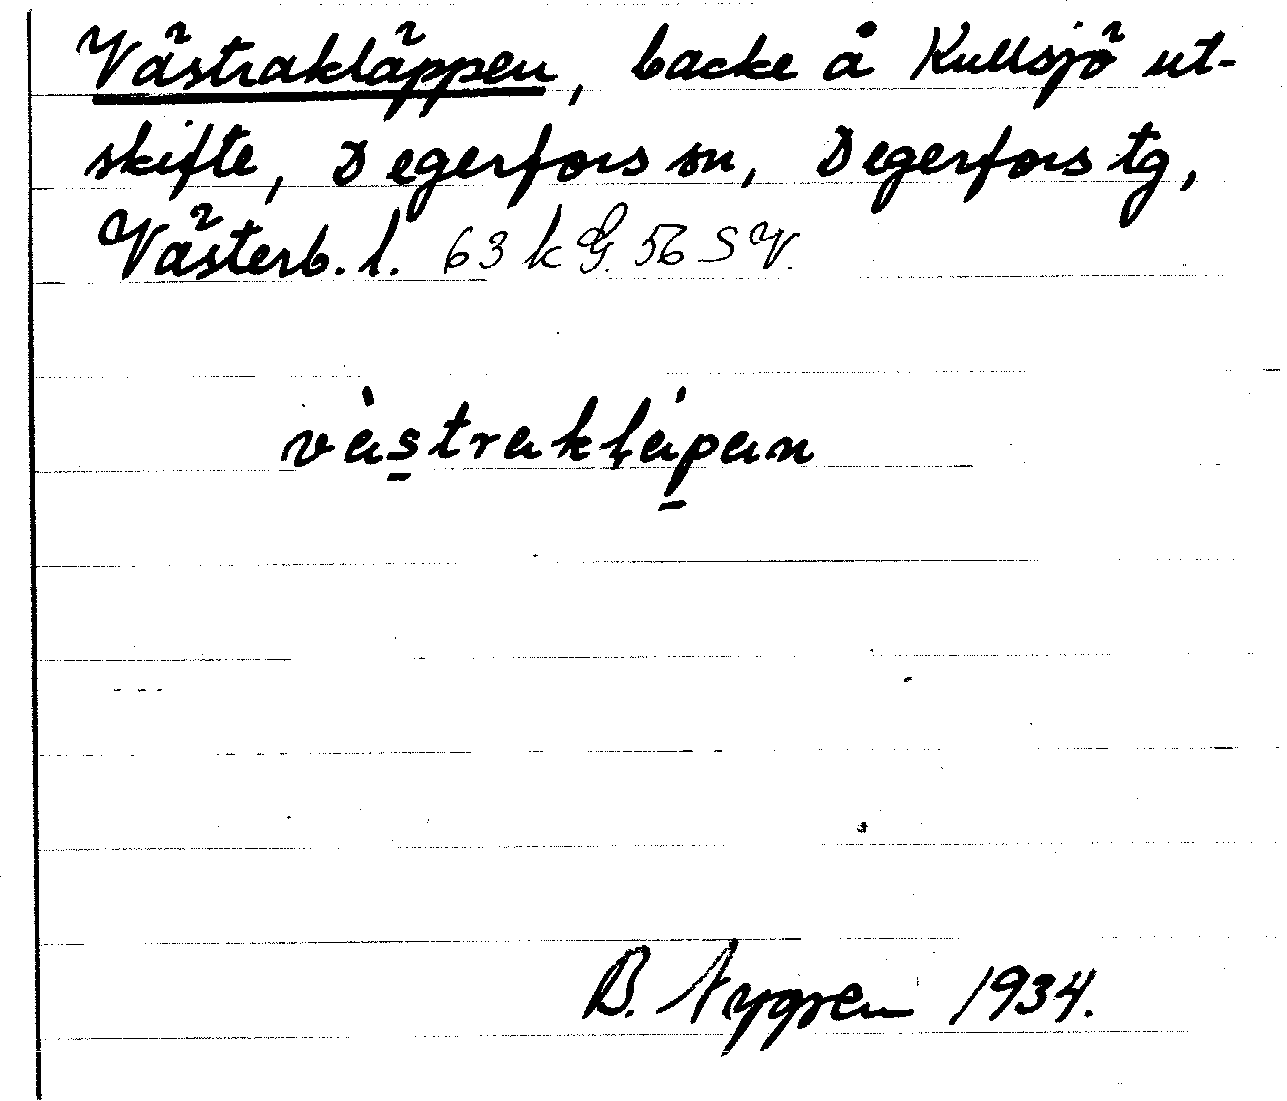 Västrakläppen, backe å Kullsjö ut-
skifte, Degerfors sn, Degerfors tg,
Västerb. l. 63 k G. 56 S V.
vàs̱trakļáp̱an
B. Nygren 1934.